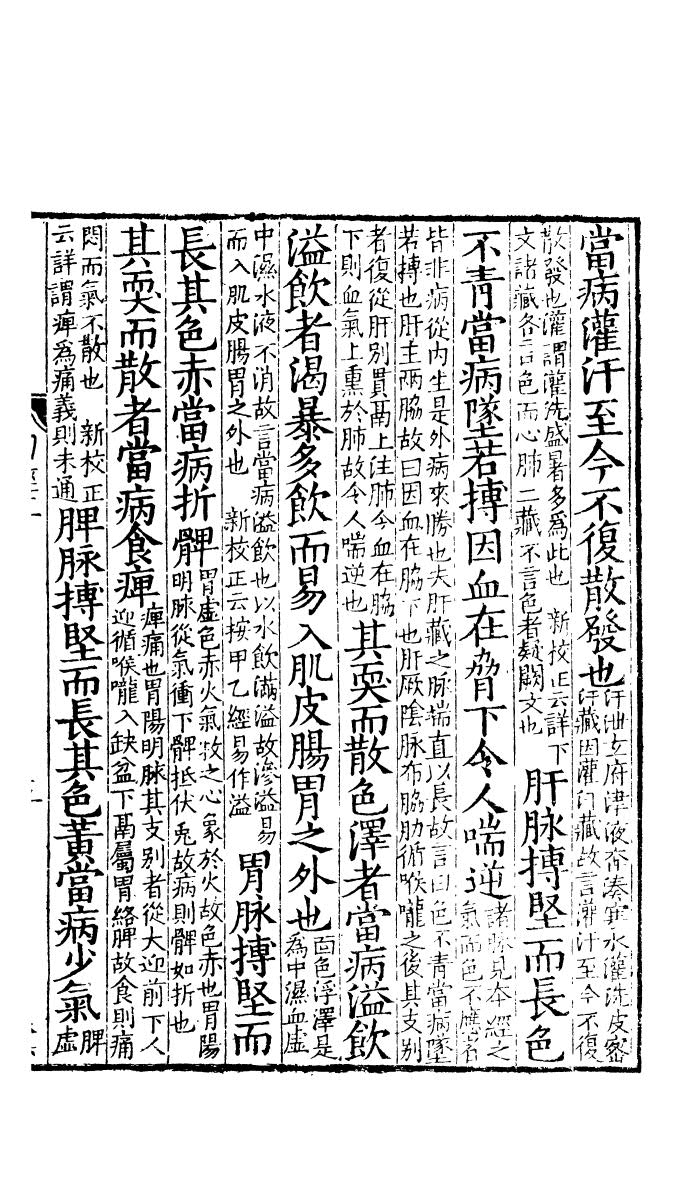 當病灌汗至今不復散發也汗泄玄府津液奔湊寒水灌洗皮密汗藏因灌汗藏故言灌汗至今不復
散發也灌謂灌洗盛暑多爲此也　新校正云詳下文諸藏各言色而心肺二藏不言色者疑闕文也　肝脉搏堅而長色
不青當病墜若搏因血在脅下令人喘逆諸脉見本經之氣而色不應者
皆非病從内生是外病來勝也夫肝藏之脉端直以長故言曰色不青當病墜若搏也肝主兩脇故曰因血在脇下也肝厥陰脉布脇肋循喉嚨之後其支别
者復從肝别貫鬲上注肺今血在脇下則血氣上熏於肺故令人喘逆也　其耎而散色澤者當病溢飲
溢飲者渴暴多飲而易入肌皮腸胃之外也面色浮澤是爲中濕血虚
中濕水液不消故言當病溢飲也以水飲滿溢故滲溢易而入肌皮腸胃之外也　新校正云按甲乙經易作溢　胃脉搏堅而
長其色赤當病折髀胃虚色赤火氣牧之心象於火故色赤也胃陽明脉從氣衝下髀抵伏兎故病則髀如折也
其耎而散者當病食痺痺痛也胃陽明脉其支别者從大迎前下人迎循喉嚨入缺盆下鬲屬胃絡脾故食則痛
悶而氣不散也　新校正云詳謂痺爲痛義則未通　脾脉搏堅而長其色黄當病少氣脾虚